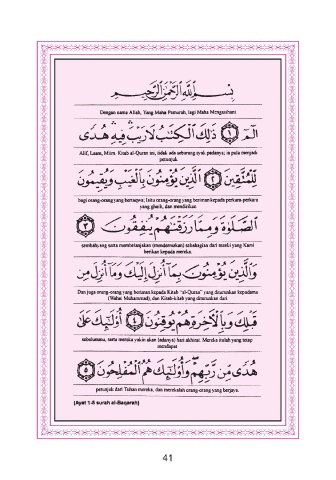 بِسْمِ ٱللَّهِ ٱلرَّحْمَٰنِ ٱلرَّحِيمِ
Dengan nama Allah, Yang Maha Pemurah, lagi Maha Mengasihani
الٓمٓ ﴿١﴾ ذَٰلِكَ ٱلْكِتَٰبُ لَا رَيْبَ فِيهِ هُدًى
Alif, Laam, Miim. Kitab al-Quran ini, tidak ada sebarang syak padanya; ia pula menjadi
petunjuk
لِّلْمُتَّقِينَ ﴿٢﴾ ٱلَّذِينَ يُؤْمِنُونَ بِٱلْغَيْبِ وَيُقِيمُونَ
bagi orang-orang yang bertaqwa; Iaitu orang-orang yang beriman kepada perkara-perkara
yang ghaib, dan mendirikan
ٱلصَّلَوٰةَ وَمِمَّا رَزَقْنَٰهُمْ يُنفِقُونَ ﴿٣﴾
sembahyang serta membelanjakan (mendermakan) sebahagian dari rezeki yang Kami
berikan kepada mereka.
وَٱلَّذِينَ يُؤْمِنُونَ بِمَآ أُنزِلَ إِلَيْكَ وَمَآ أُنزِلَ مِن
Dan juga orang-orang yang beriman kepada Kitab "al-Quran" yang diturunkan kepadamu
(Wahai Muhammad), dan Kitab-kitab yang diturunkan dari
قَبْلِكَ وَبِٱلْءَاخِرَةِ هُمْ يُوقِنُونَ ﴿٤﴾ أُو۟لَٰٓئِكَ عَلَىٰ
sebelummu, serta mereka yakin akan (adanya) hari akhirat. Mereka itulah yang tetap
mendapat
هُدًى مِّن رَّبِّهِمْ وَأُو۟لَٰٓئِكَ هُمُ ٱلْمُفْلِحُونَ ﴿٥﴾
petunjuk dari Tuhan mereka, dan merekalah orang-orang yang berjaya.
(Ayat 1-5 surah al-Baqarah)
41